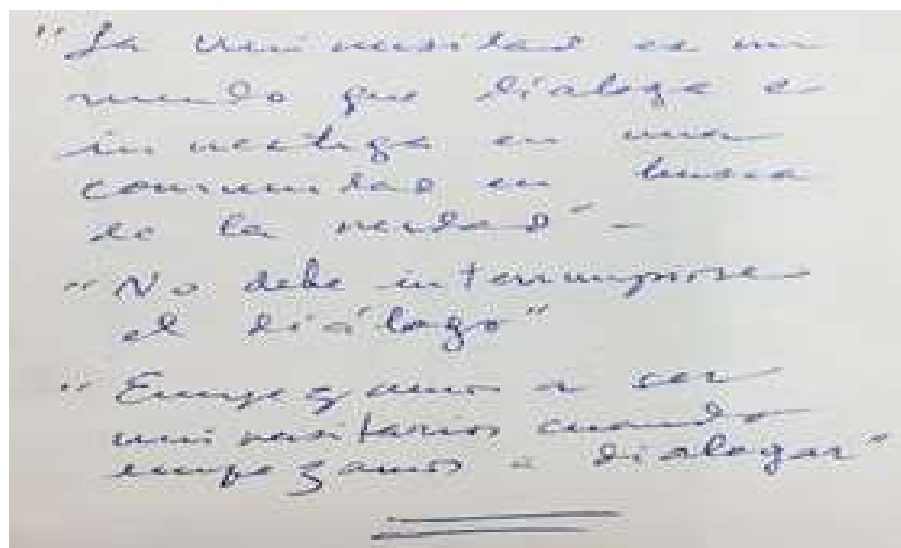 "La universidad es un
mundo que dialoga e
investiga en una
comunidad en busca
de la verdad" -
"No debe interrumpirse
el diálogo"
"Empezamos a ser
universitarios cuando
empezamos a dialogar"